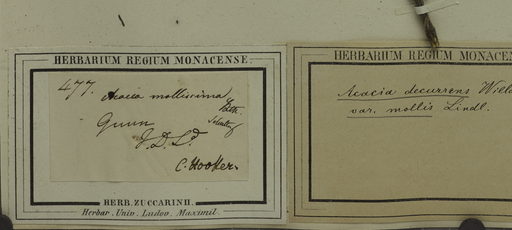 HERBARIUM REGIUM MONACENSE.
477. Acacia mollissima
Gunn
V. D. Ld.
C. Hooker.
HERB. ZUCCARINII.
Herbar. Univ. Ludov. Maximil.
HERBARIUM REGIUM MONACEN
Acacia decurrens Willd
var. mollis Lindl.